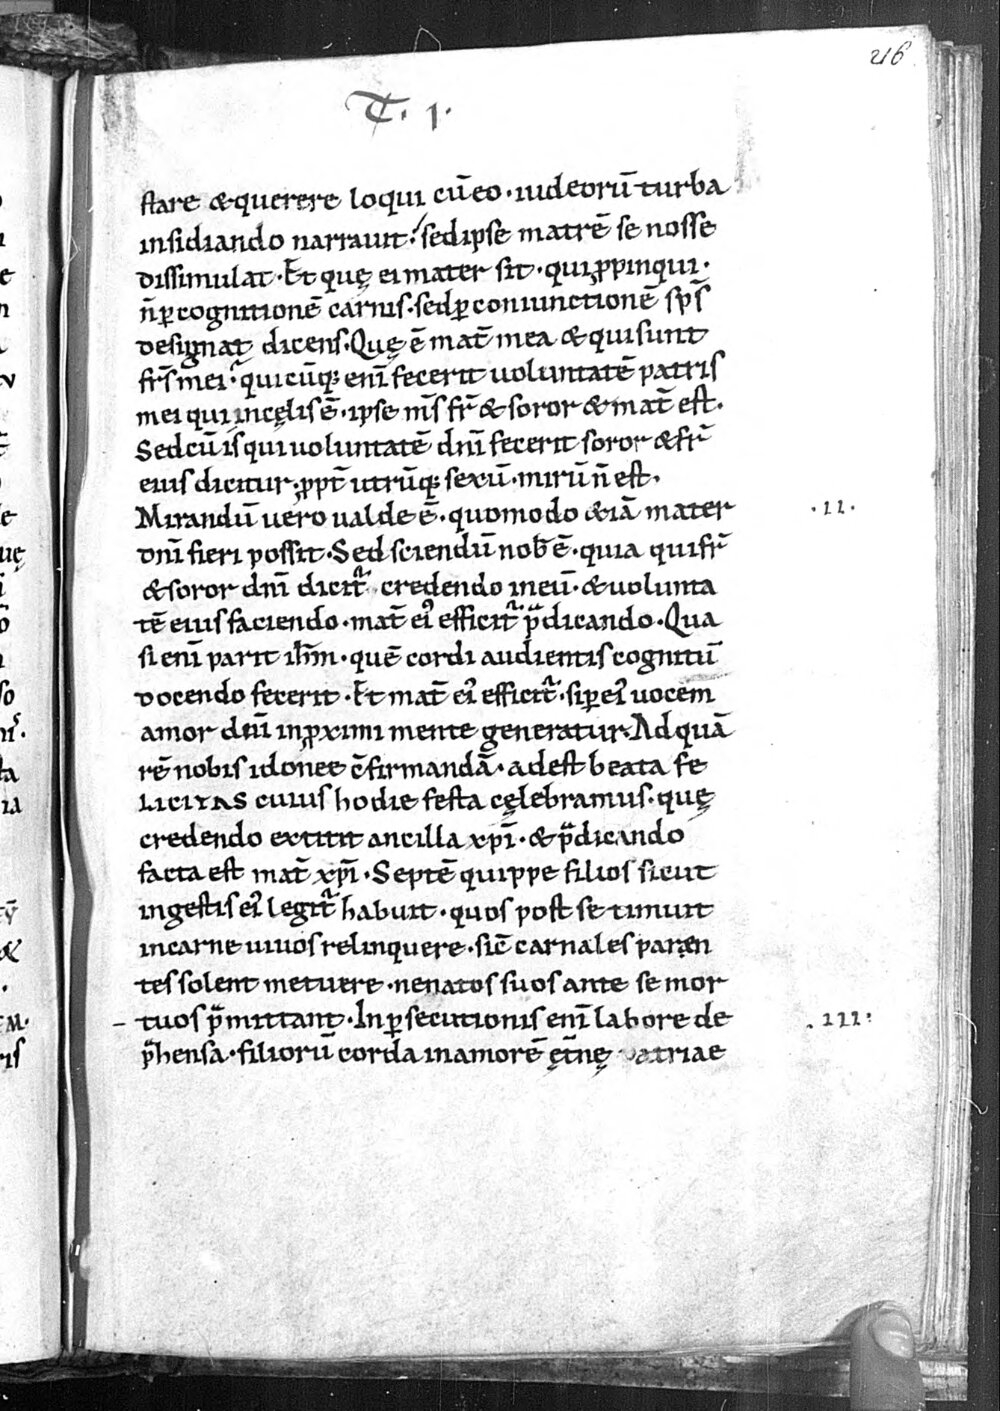 216
T. I.
stare & querere loqui cū eo · iudeorū turba
insidiando narrauit · sed ipse matrē se nosse
dissimulat · Et quę ei mater sit · qui ꝓpinqui ·
n̄ ꝑ cognitionē carnis · sed ꝑ coniunctionē sp̄s
designat dicens · Quę ē mat̄ mea & qui sunt
fr̄s mei · quicūq; eni̅ fecerit uoluntatē patris
mei qui in cęlis ē · ipse m̄s fr̄ & soror & mat̄ est ·
Sed cū is qui uoluntatē dn̄i fecerit soror & fr̄
eius dicitur · ꝓpt̄ utrūq; sexū · mirū n̄ est ·
Mirandū uero ualde ē · quomodo & iā mater
· II ·
dn̄i fieri possit · Sed sciendū nob̄ ē · quia qui fr̄
& soror dn̄i dicit᷑ credendo in eū · & uolunta
tē eius faciendo · mat̄ eiꝰ efficit᷑ p̄dicando · Qua
si eni̅ parit ih̄m · quē cordi audientis cognitū
docendo fecerit · Et mat̄ eiꝰ efficit᷑ · si ꝑ eiꝰ uocem
amor dn̄i in ꝓximi mente generatur · Ad quā
rē nobis idonee c̄firmandā · adest beata fe
LICITAS cuius hodie festa cęlebramus · quę
credendo extitit ancilla xp̄i · & p̄dicando
facta est mat̄ xp̄i · Septē quippe filios sicut
in gestis eiꝰ legit᷑ habuit · quos post se timuit
in carne uiuos relinquere · sic̄ carnales paren
tes solent metuere · ne natos suos ante se mor
tuos p̄mittant · In ꝑsecutionis eni̅ labore de
· III ·
p̄hensa · filiorū corda in amorē ęt̄nę patriae